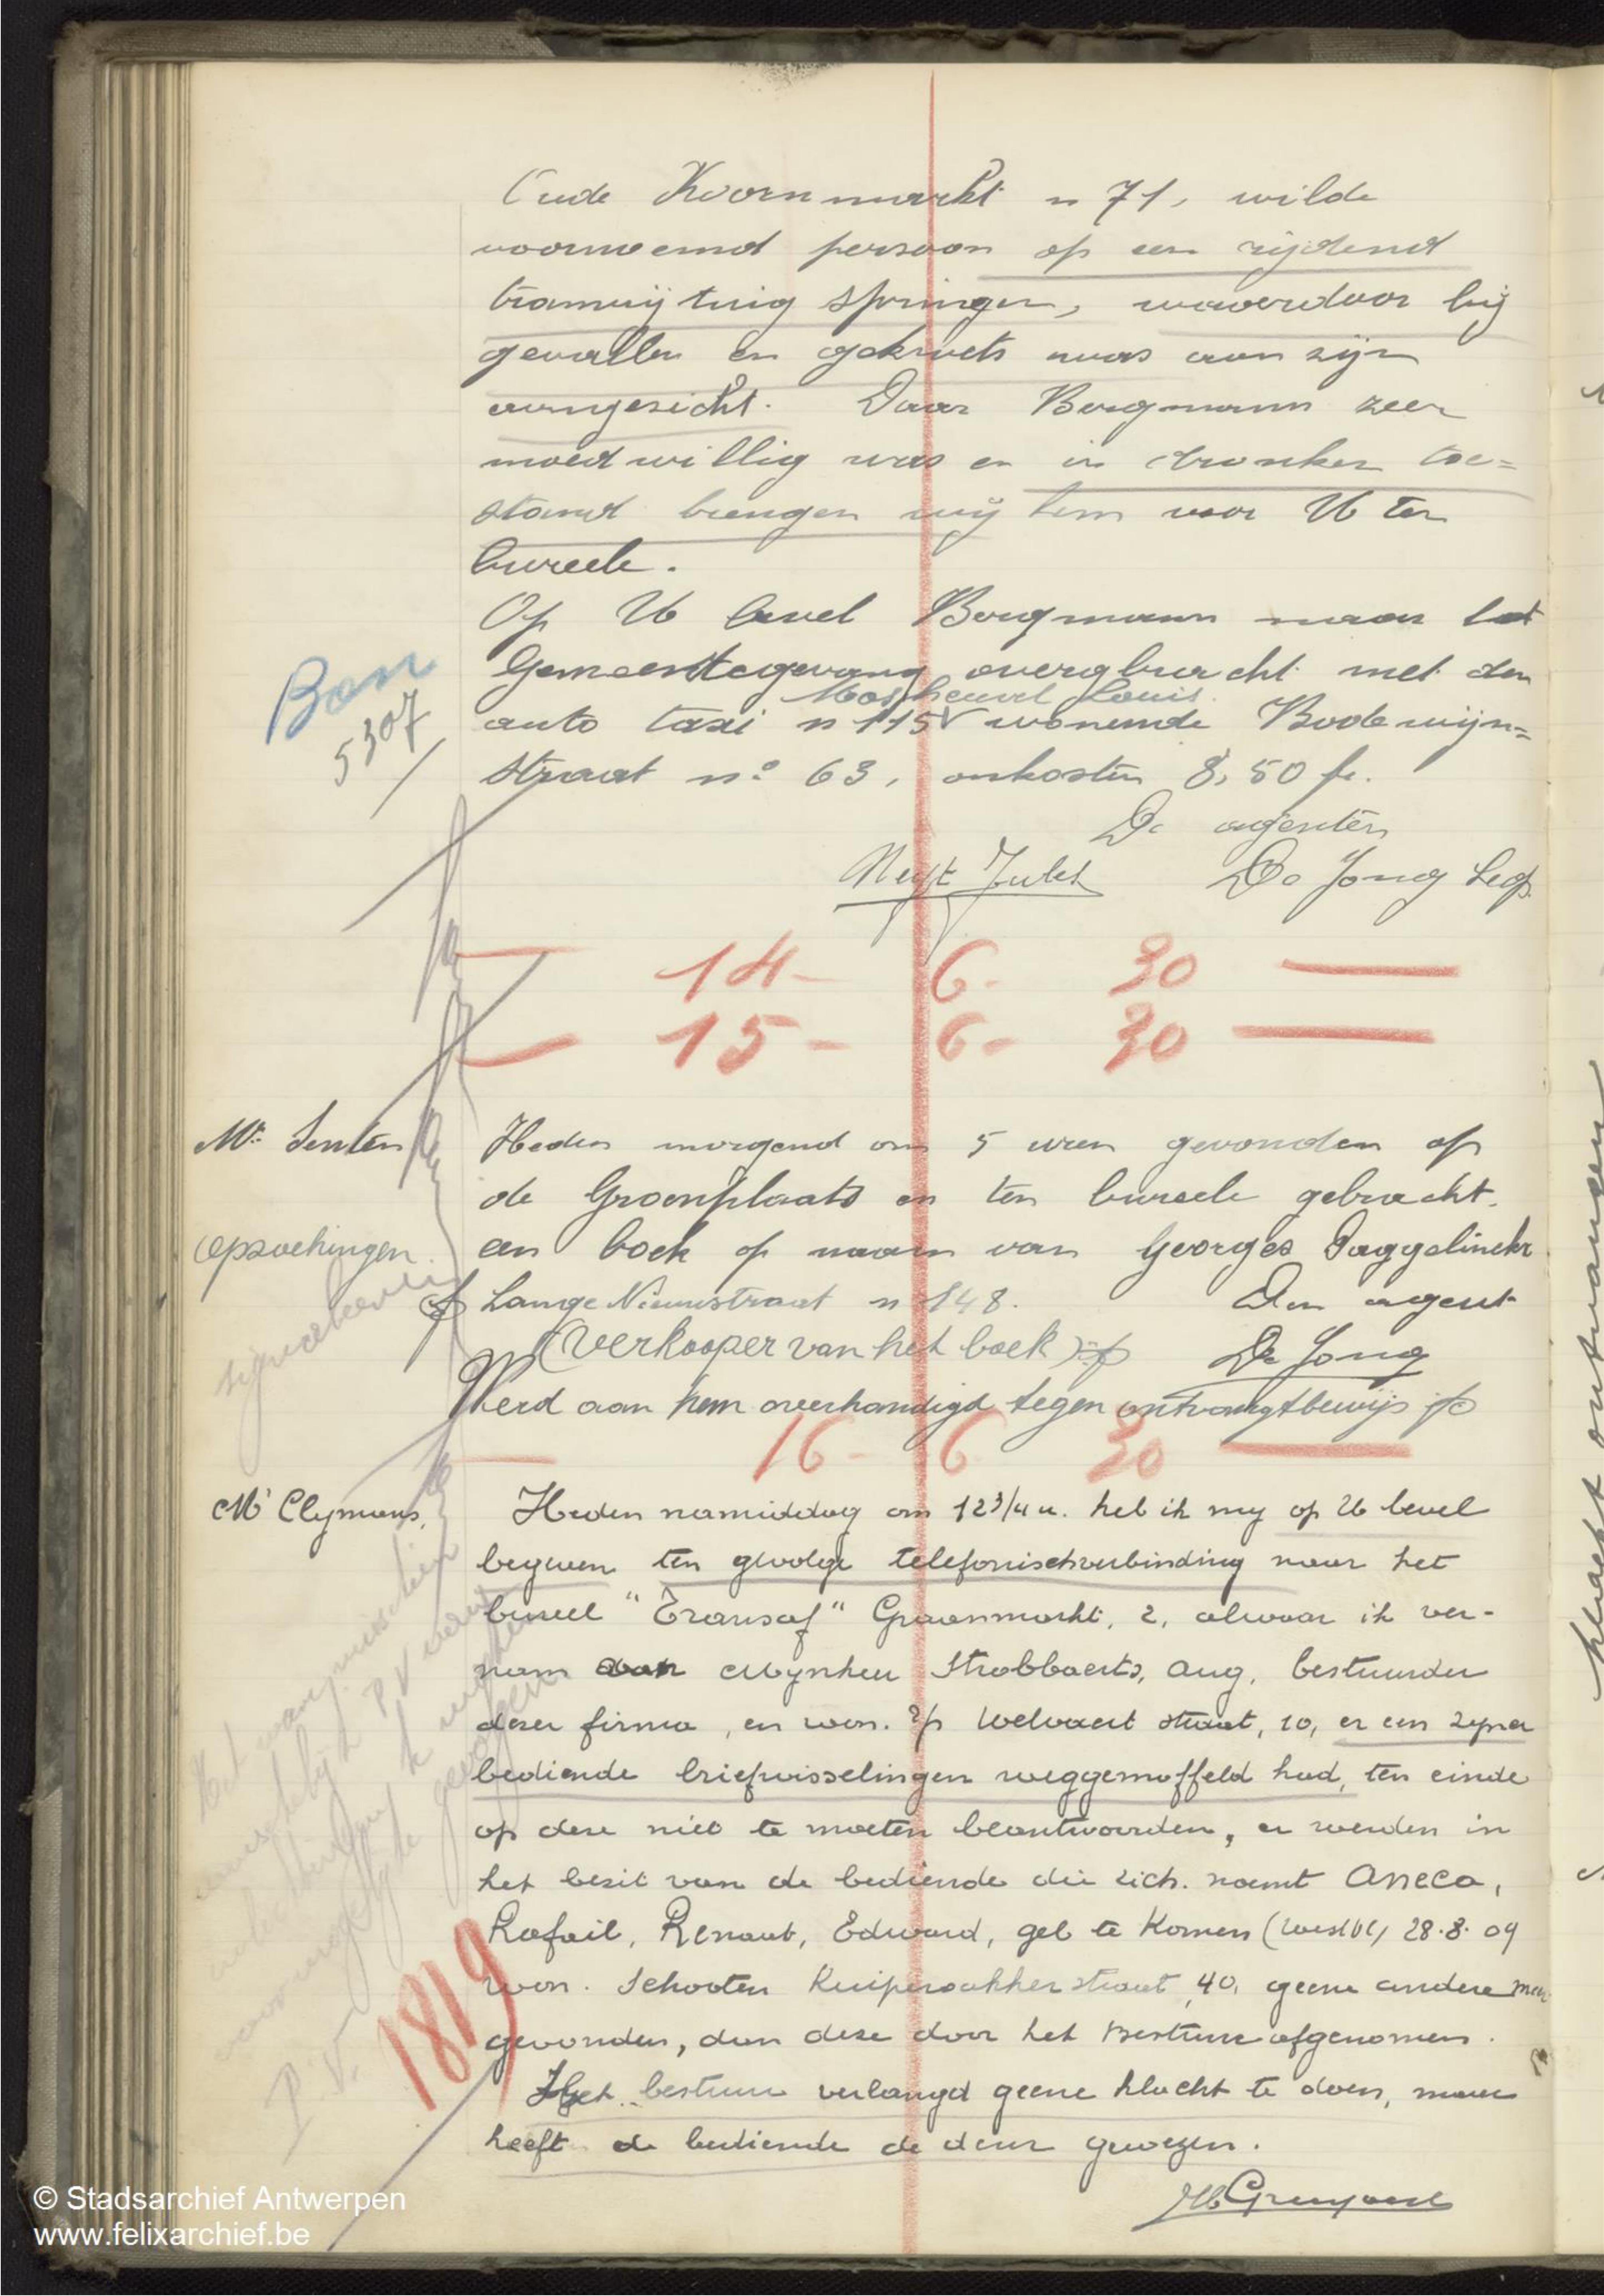 Oude Koornmarkt n 71, wilde
voornoemd persoon op een rijdend
tramrijtuig springen, waardoor hij
gevallen en gekwets was aan zijn
aangezicht. Daar Borgmann zeer
moedwillig was en in dronken toe=
stand brengen wij hem voor U ten
bureele.
Op U bevel Borgmann naar het
Gemeentegevang overgebracht met den
Louis
auto taxi n 115 V wonende Bodewijn=
Bon
5307
straat n° 63, onkosten 8,50 fr.
De agenten
De Jong Leop.
14- 6- 30
15- 6- 30
Mr Senten
Heden morgend om 5 uren gevonden op
de Groenplaats en ten bureele gebracht.
opzoekingen
een boek op naam van Georges Daggelinckx
Lange Nieuwstraat n 148. Den agent
(Verkooper van het boek) De Jong
Werd aan hem overhandigd tegen ontvangstbewijs
16- 6 30
Mr Clymans.
Heden namiddag om 12 3/4 u. heb ik my op U bevel
begeven ten gevolge telefonischverbinding naar het
bureel "Transaf" Graanmarkt, 2, alwaar ik ver-
nam van Mynheer Strobbaerts, Aug, bestuurder
dezer firma, en won. Welvaert straat, 10, er een zyner
bediende briefwisselingen weggemoffeld had, ten einde
op deze niet te moeten beantwoorden, er werden in
het bezit van de bediende die zich. noemt Aneca,
Rafaïl, Renaut, Edward, geb te Komen (West Vl) 28.8.09
won. Schooten Kuipersakker straat, 40, geene andere meer
gevonden, dan deze door het Bestuur afgenomen.
1819
Het bestuur verlangd geene klacht te doen, maar
heeft de bediende de deur gewezen.
P.V.
klacht ontvangen
© Stadsarchief Antwerpen
www.felixarchief.be